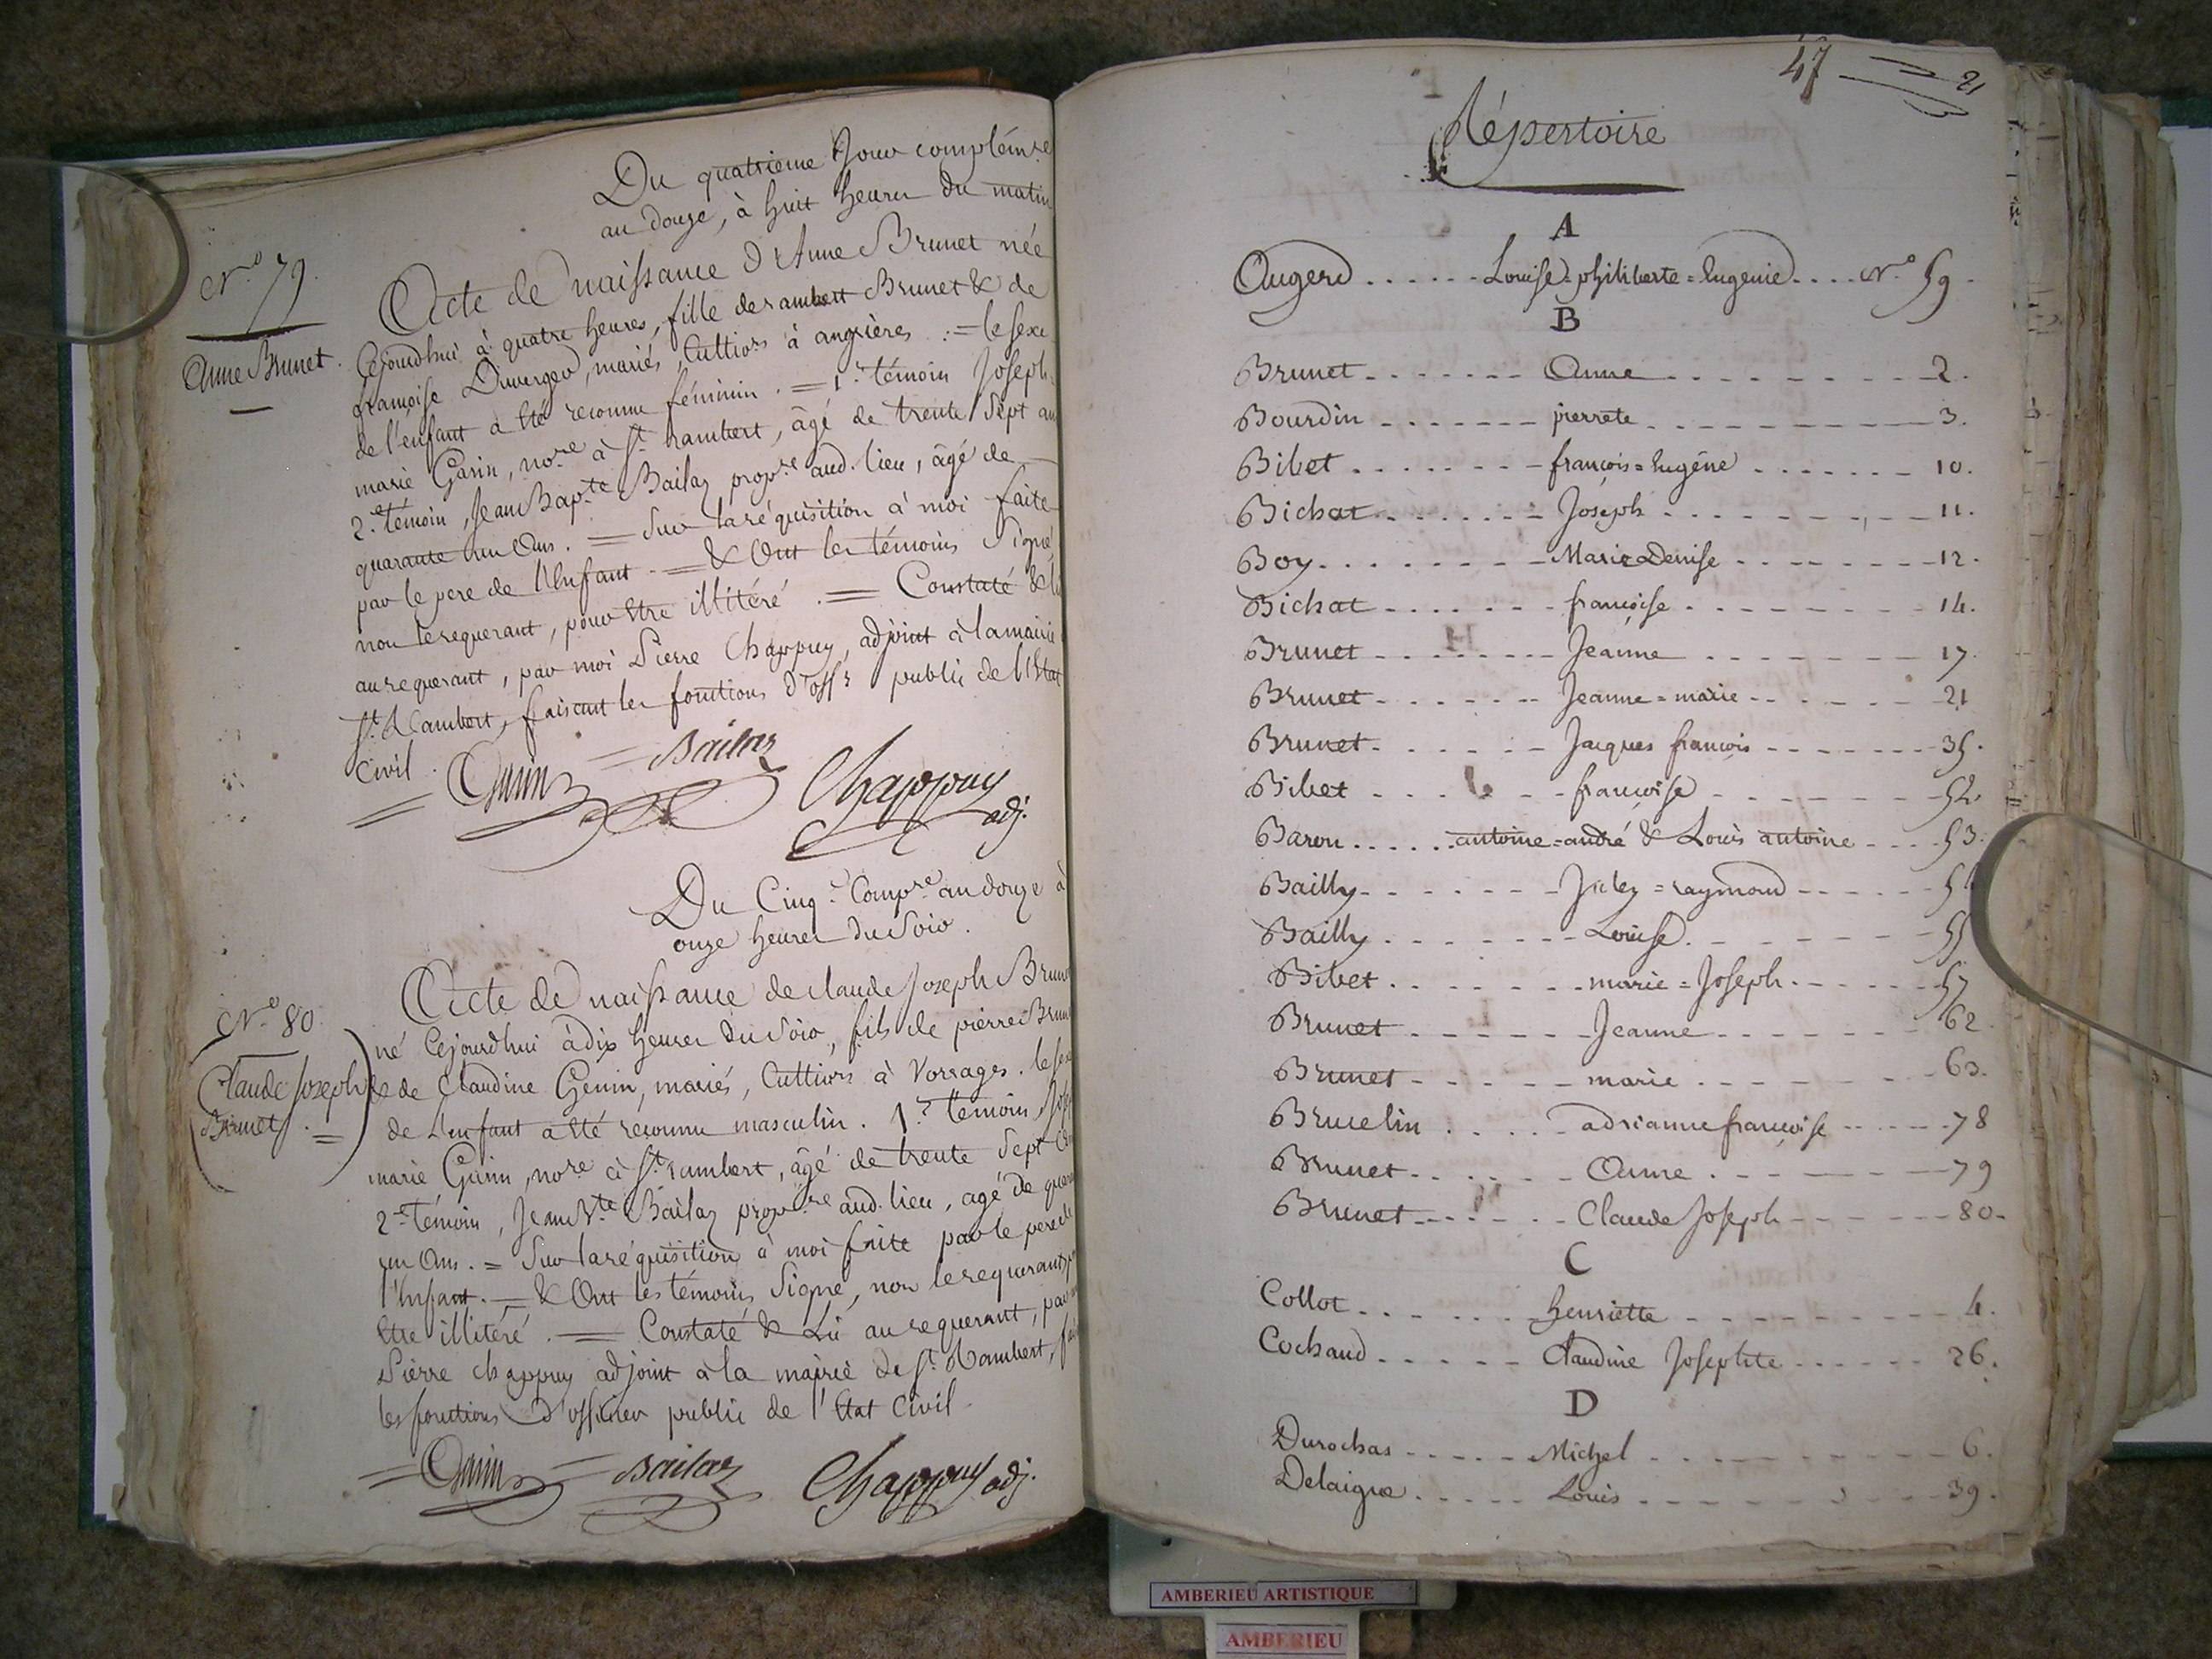 Du quatrieme Jour complém.re
an douze, à huit heures du matin
N.o 79.
Anne Brunet.
Acte de naissance d'Anne Brunet née
Cejourdhui à quatre heures, fille de rambert Brunet & de
françoise Duverger, mariés, Cultiv.rs à angrières := le sexe
de l'enfant a été reconnu féminin. = 1.er témoin Joseph=
marie Garin, no.re à S.t rambert, âgé de trente Sept an
2.e témoin, Jean Bap.te Bailaz prop.re aud. lieu, âgé de
quarante un Ans. = Sur la réquisition à moi faite
par le pere de l'Enfant. = & Ont les témoins Signé,
non le requerant, pour Etre illitéré. = Constaté & lu
au requerant, par moi Pierre Chappuy, adjoint à la mairie
S.t Rambert, faisant les fonctions d'off.r public de l'Etat
Civil.
= Garin = Bailaz Chappuy
adj.
Du Cinq.e Comp.re an douze à
onze heures du Soir.
N.o 80.
Claude Joseph
Brunet. =
Acte de naissance de Claude Joseph Brun
né Cejourdhui à dix heures du Soir, fils de pierre Brun
& de Claudine Genin, mariés, Cultiv.rs à Vorrages. le sex
de L'enfant a été reconnu masculin. 1.er témoin
marie Garin, no.re à S.t rambert, âgé de trente Sept
2.e témoin, Jean B.te Bailaz prop.re aud. lieu, agé de
un Ans. = Sur la réquisition à moi faite par le pere de
l'Enfant. = & Ont les témoins Signé, non le requerant,
Etre illitéré. = Constaté & Lû au requerant, par
Pierre Chappuy adjoint à la mairie de S.t Rambert,
les fonctions d'officier public de l'Etat Civil.
= Garin = Bailaz Chappuy adj.
47 = 21
Répertoire
A
Augerd ...... Louise=philiberte=Eugenie .... N.o 59.
B
Brunet ....... Anne ......... 2.
Bourdin ....... pierrete ......... 3.
Bibet ....... françois=Eugéne ....... 10.
Bichat ....... Joseph ........ 11.
Boy ....... Marie Denise ........ 12.
Bichat ...... françoise ........ 14.
Brunet ....... Jeanne ....... 17
Brunet ...... Jeanne=marie ...... 21
Brunet ...... Jacques françois ....... 35.
Bibet ...... françoise ....... 52.
Baron ...... antoine=andré & Louis antoine .... 53.
Bailly ...... Jules=raymond ......
Bailly ....... Louise ....... 55
Bibet ....... marie=Joseph ...... 57
Brunet ...... Jeanne ....... 62.
Brunet ...... marie ....... 63.
Brucelin ..... adrianne françoise ...... 78
Brunet ...... Anne ....... 79
Brunet ...... Claude Joseph ....... 80.
C
Collot ...... henriette ......... 4.
Cochaud ..... Claudine Josephte ...... 26.
D
Durochas ..... Michel .......... 6.
Delaigue ..... Louis ......... 39.
AMBERIEU ARTISTIQUE
AMBERIEU